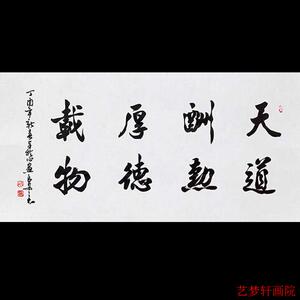 天道
酬勤
厚德
載物
丁酉年
艺梦轩画院